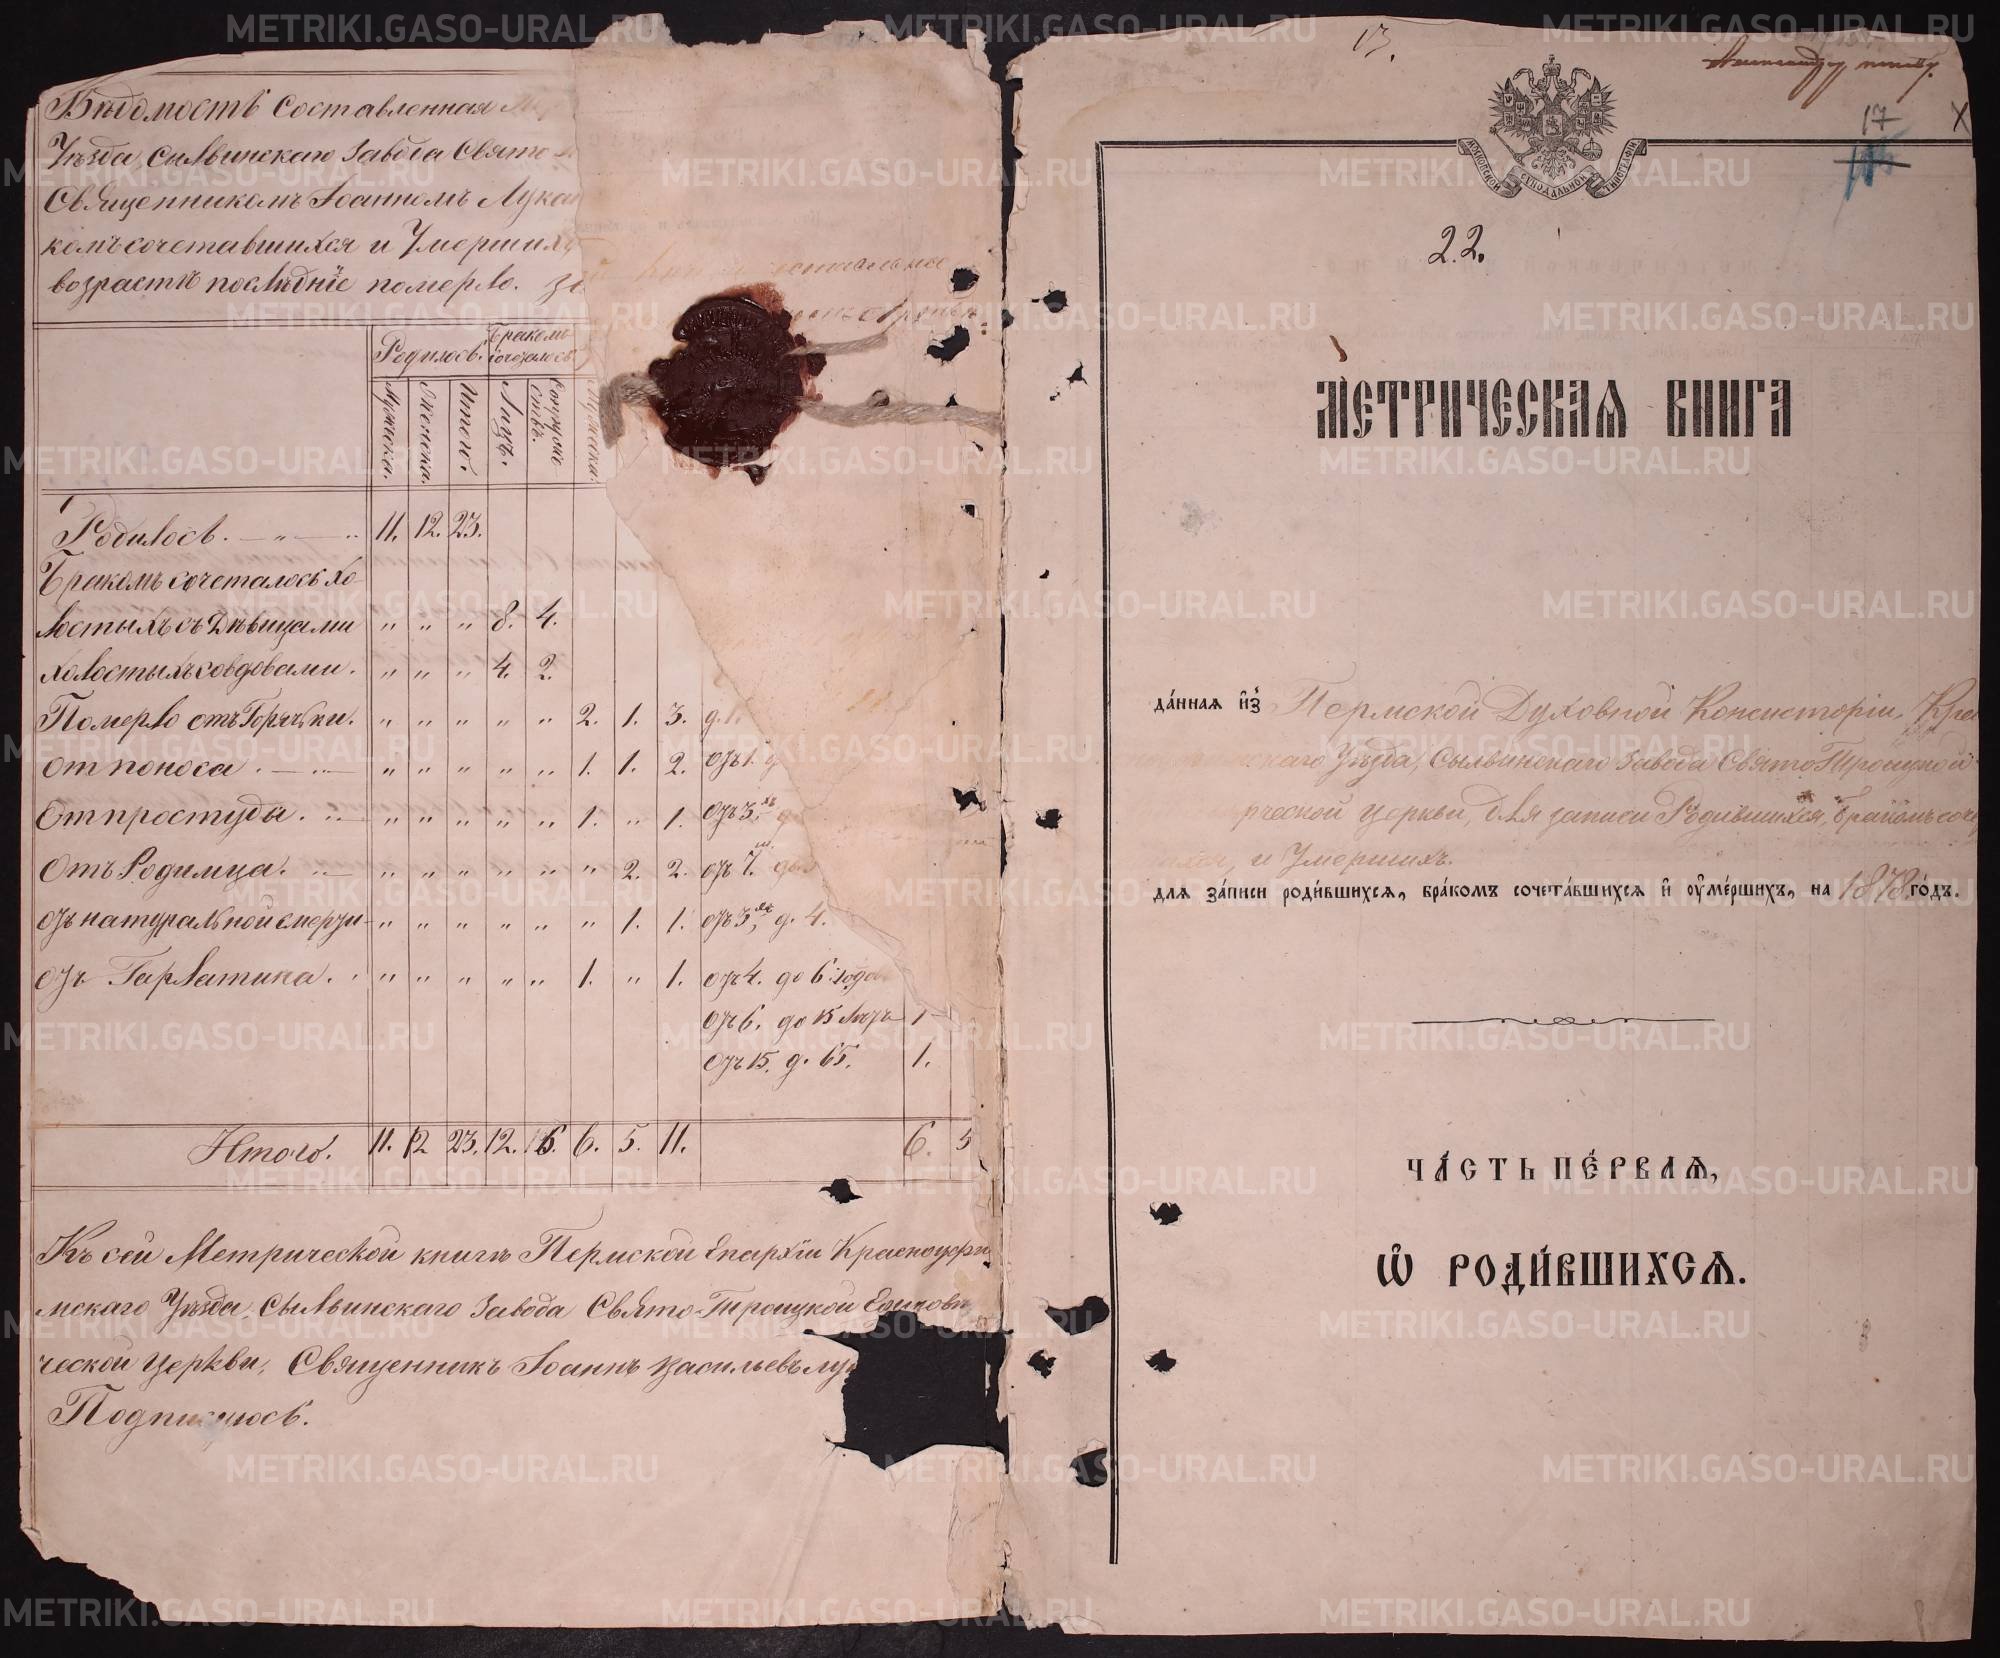 Вѣдомость составленная
Уѣзда, Сылвинскаго Завода Свято
Священникомъ Іоанномъ Лукан
комъ сочетавшихся и Умершихъ
возрастѣ послѣдніе померло.
Родилось. Бракомъ сочеталось
Мужеска. Женска. Итого. Лицъ. Супружествъ. Мужеска.
Родилось. — „ — .. 11. 12. 23.
Бракомъ сочеталось хо-
лостыхъ съ Дѣвицами „ „ „ 8. 4.
холостыхъ совдовами. „ „ „ 4. 2.
Померло отъ Горячки. „ „ „ „ „ 2. 1. 3.
от поноса . — „ — „ „ „ „ „ 1. 1. 2. отъ 1.
От простуды. „ — „ „ „ „ „ 1. „ 1. отъ 3.хъ
Отъ Родимца. „ — „ „ „ „ „ „ 2. 2. отъ 7.
отъ натуральной смерти- „ „ „ „ „ „ 1. 1. отъ 3, д. 4.
отъ Гарлатика. . „ „ „ „ „ 1. „ 1. отъ 4. до 6 года
отъ 6. до 15 лѣтъ 1
отъ 15. д. 65. 1.
Итого. 11. 12 23. 12. 6. 6. 5. 11. 6. 5
Къ сей Метрической книгѣ Пермской Епархіи Красноуфи
мскаго Уѣзда, Сылвинскаго Завода Свято-Троицкой Единовѣ
ческой Церкви, Священникъ Іоаннъ Васильевъ Лу
Подписуюсь.
13.
17
22.
МОСКОВСКОЙ СѴНОДАЛЬНОЙ ТИПОГРАФІИ
МЕТРИЧЕСКАѦ КНИГА
да́ннаѧ и҆з̾ Пермской Духовной Консисторіи, Кра
скаго Уѣзда, Сылвинскаго Завода Свято Троицкой
рческой церкви, для записи Родившихся, Бракомъ соче
ихся, и Умершихъ.
для за́писи роди́вшихсѧ, бра́комъ сочета́вшихсѧ и҆ ᲂу҆ме́ршихъ, на 1878 го́дъ.
ЧА́СТЬ ПЕ́РВАѦ,
Ѽ РОДИ́ВШИХСѦ.
METRIKI.GASO-URAL.RU